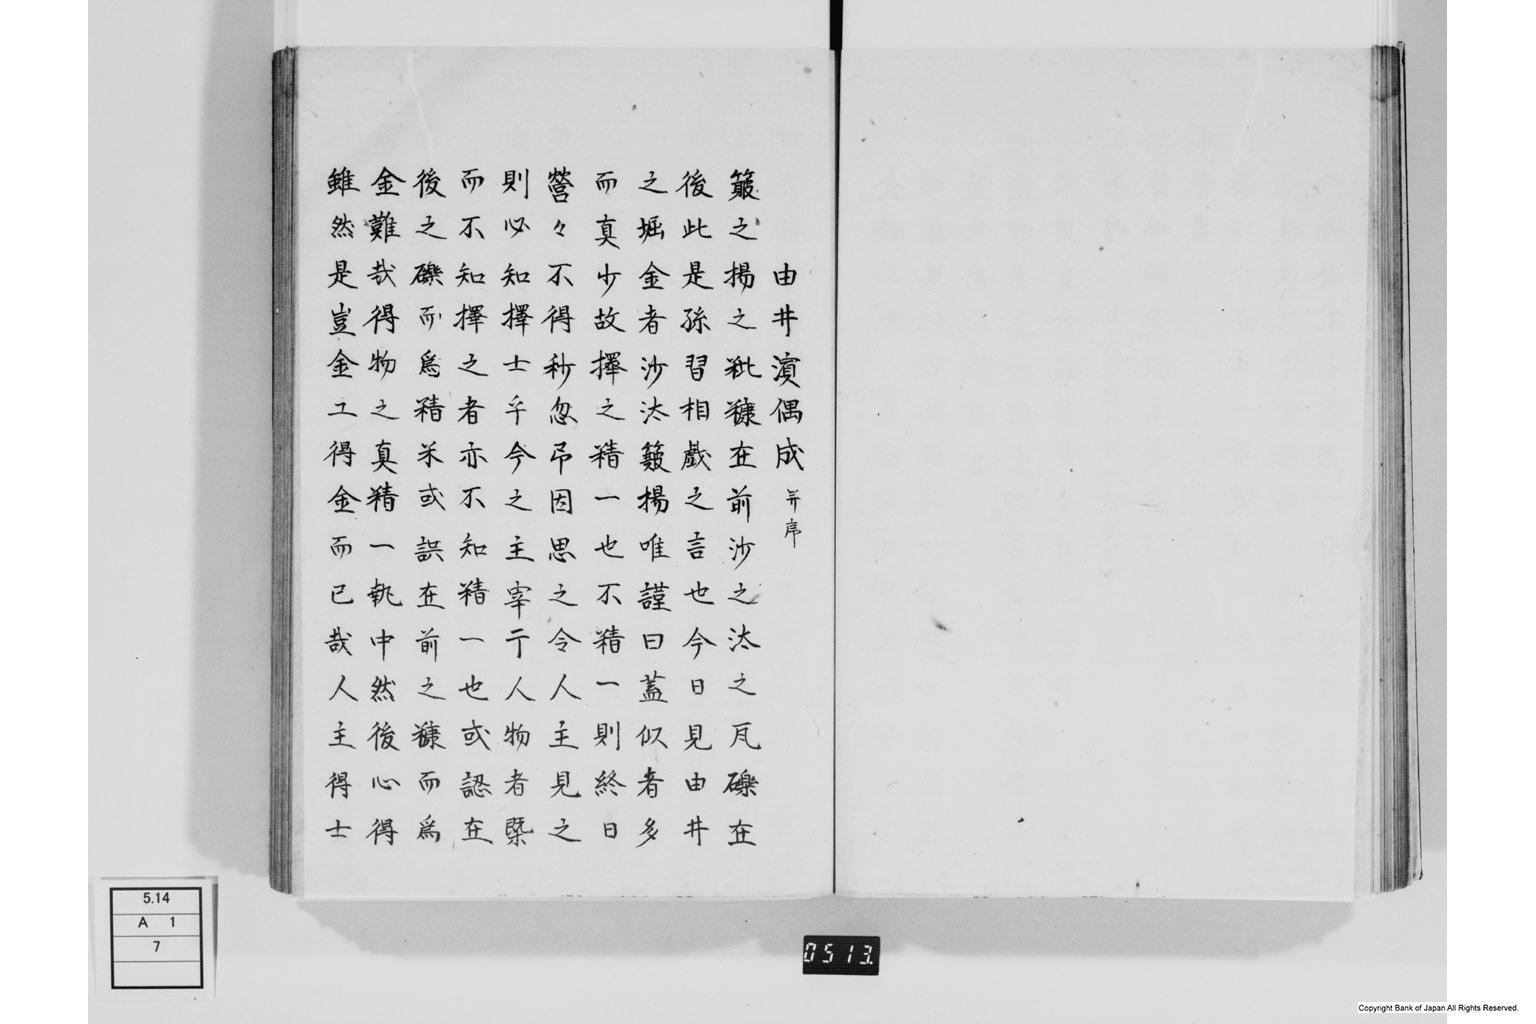 由井濱偶成 并序
簸之揚之粃糠在前沙之汰之瓦礫在
後此是孫習相戯之言也今日見由井
之堀金者沙汰簸揚唯謹曰蓋似者多
而真少故擇之精一也不精一則終日
營々不得秒忽吊因思之今人主見之
則必知擇士乎今之主宰亍人物者槩
而不知擇之者亦不知精一也或認在
後之礫而爲精米或誤在前之糠而爲
金難哉得物之真精一執中然後心得
雖然是豈金工得金而已哉人主得士
5.14
A 1
7
0513.
Copyright Bank of Japan All Rights Reserved.